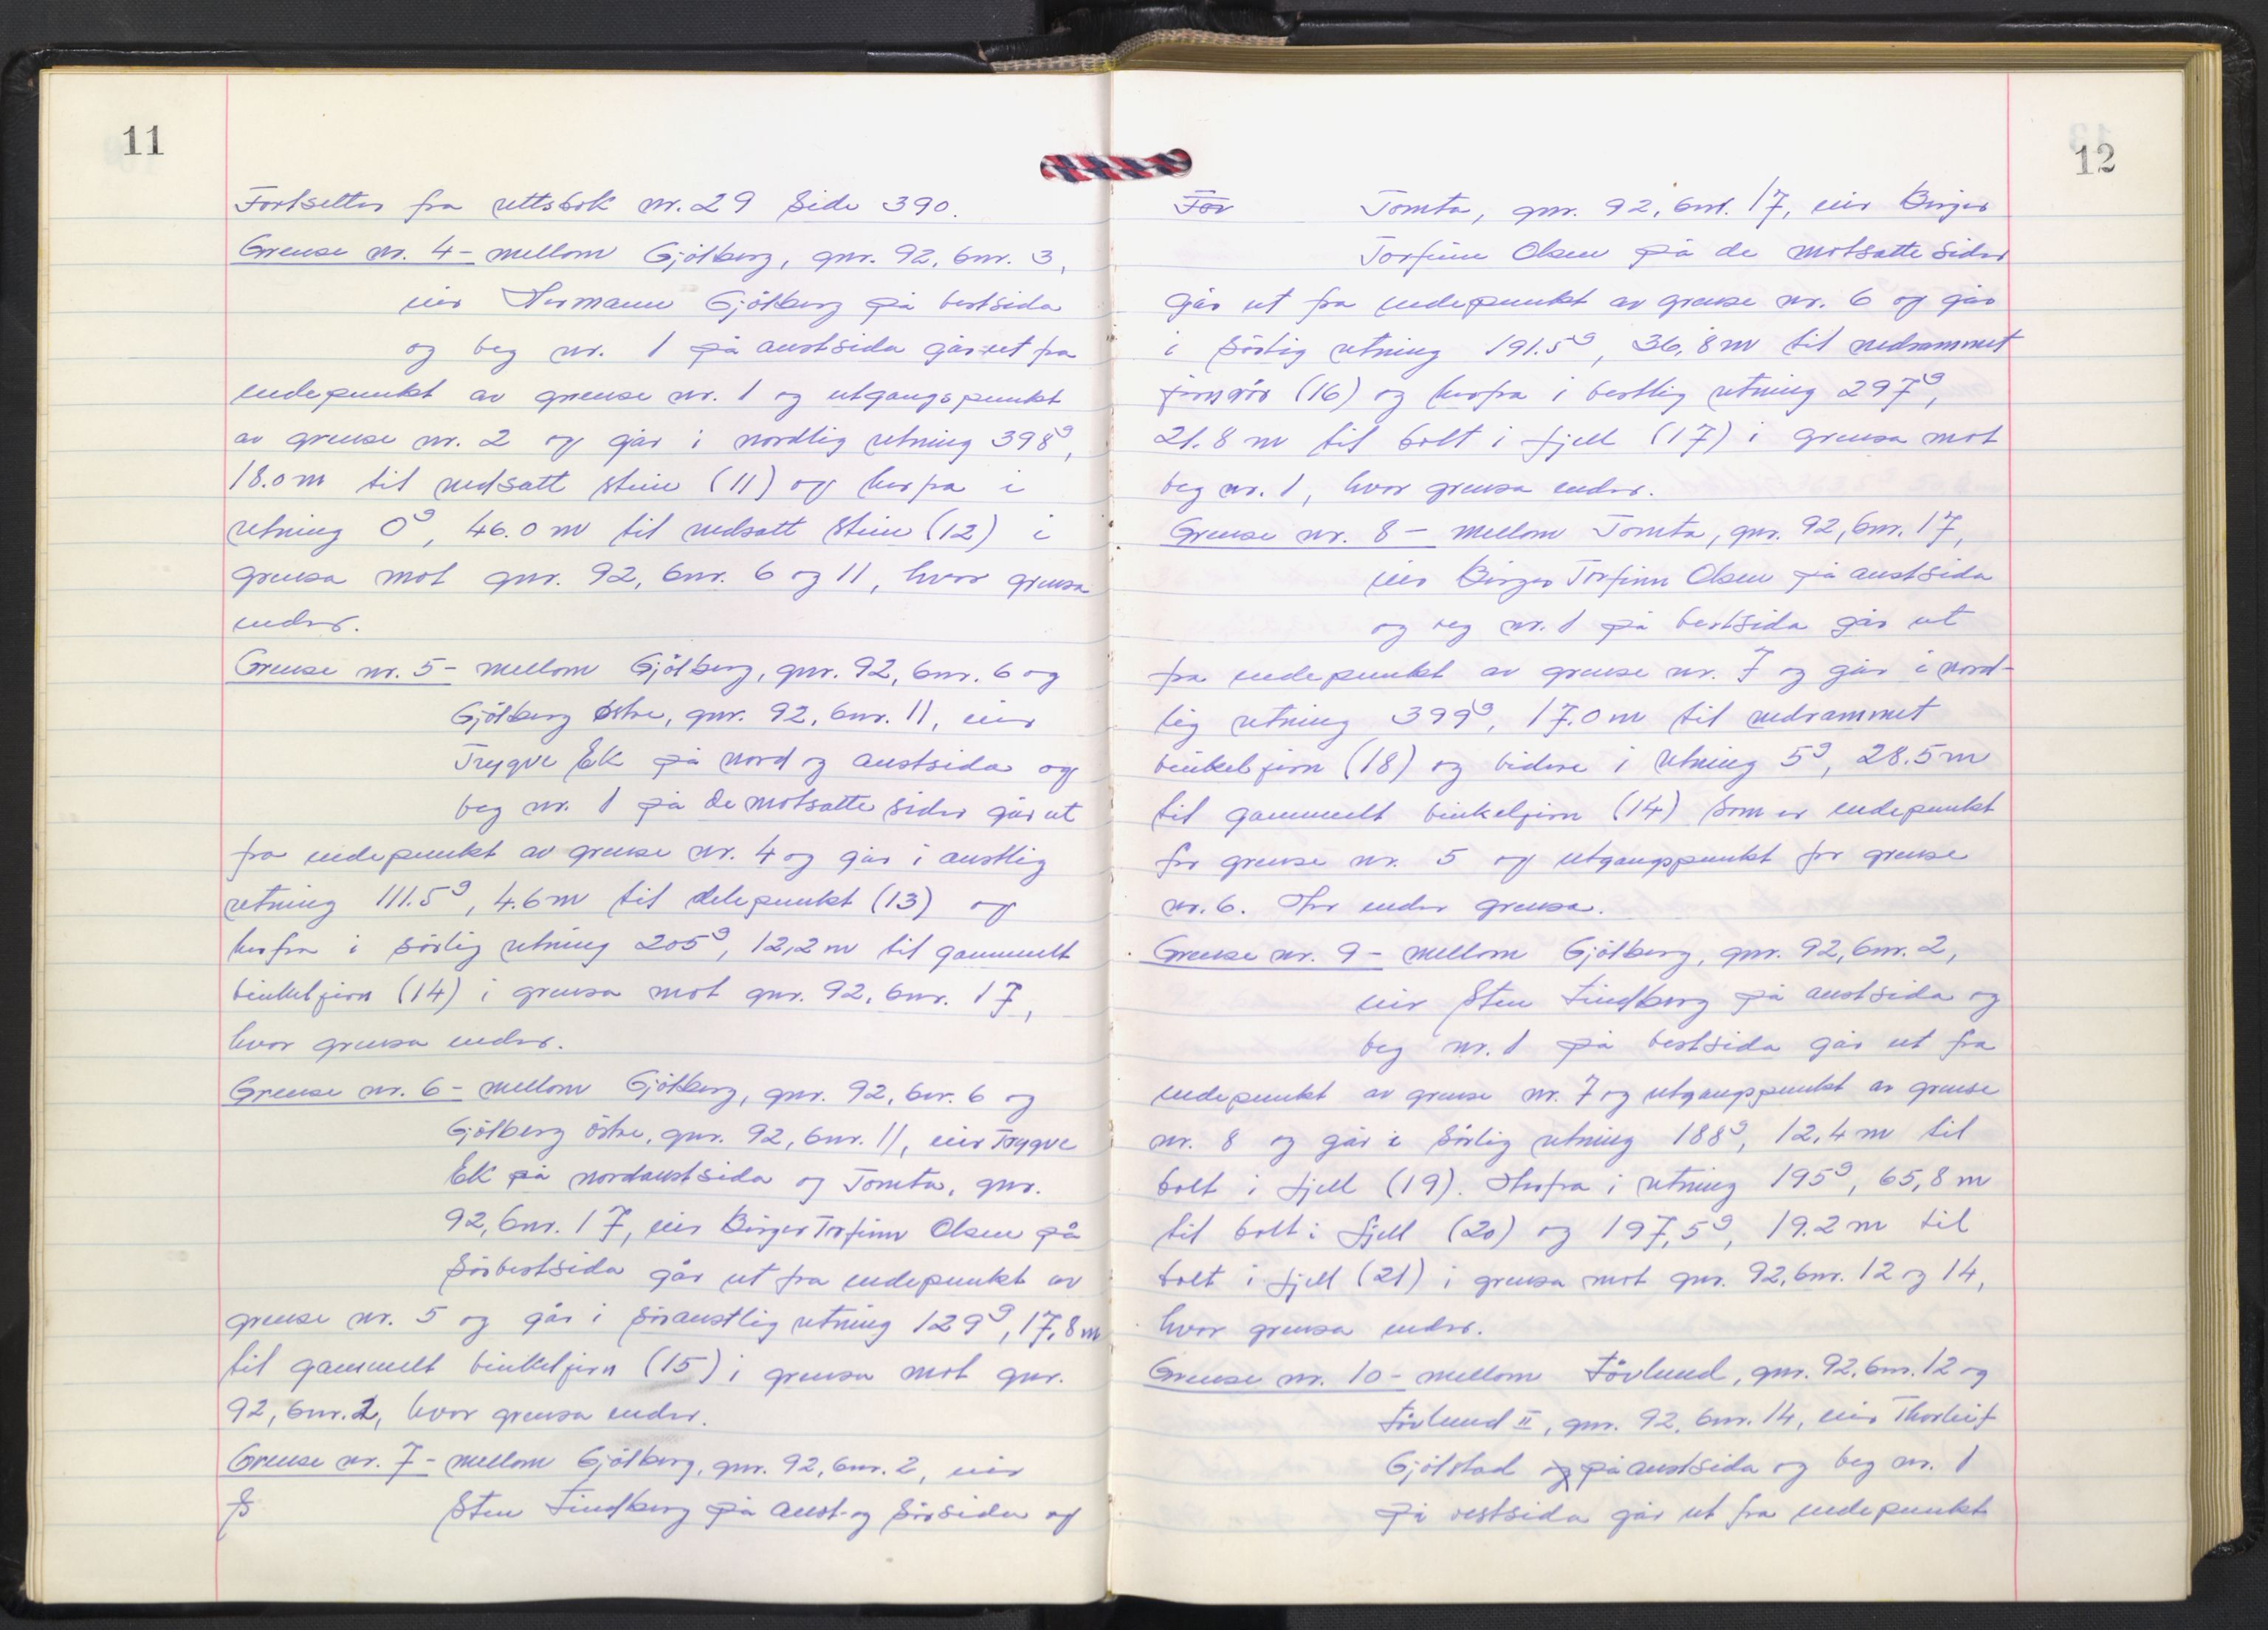 11
Fortsetter fra rettsbok nr. 29 side 390.
Grense nr. 4 - mellom Gjölberg, gnr. 92, bnr. 3,
eier Hermann Gjölberg på vestsida
og veg nr. 1 på austsida går ut fra
endepunkt av grense nr. 1 og utgangspunkt
av grense nr. 2 og går i nordlig retning 398g,
18.0 m til nedsatt stein (11) og herfra i
retning 0g, 46.0 m til nedsatt stein (12) i
grensa mot gnr. 92, bnr. 6 og 11, hvor grensa
ender.
Grense nr. 5 - mellom Gjölberg, gnr. 92, bnr. 6 og
Gjölberg östre, gnr. 92, bnr. 11, eier
Trygve Ek på nord og austsida og
veg nr. 1 på de motsatte sider går ut
fra endepunkt av grense nr. 4 og går i austlig
retning 111.5g, 4.6 m til delepunkt (13) og
herfra i sörlig retning 205g, 12,2 m til gammelt
vinkeljern (14) i grensa mot gnr. 92, bnr. 17,
hvor grensa ender.
Grense nr. 6 - mellom Gjölberg, gnr. 92, bnr. 6 og
Gjölberg östre, gnr. 92, bnr. 11, eier Trygve
Ek på nordaustsida og Tomta, gnr.
92, bnr. 17, eier Birger Torfinn Olsen på
sörvestsida går ut fra endepunkt av
grense nr. 5 og går i söraustlig retning 129g, 17,8 m
til gammelt vinkeljern (15) i grensa mot gnr.
92, bnr. 2, hvor grensa ender.
Grense nr. 7 - mellom Gjölberg, gnr. 92, bnr. 2, eier
Sten Lindberg på aust- og sörsida og
12
For Tomta, gnr. 92, bnr. 17, eier Birger
Torfinn Olsen på de motsatte sider
går ut fra endepunkt av grense nr. 6 og går
i sörlig retning 191.5g, 36,8 m til nedrammet
jernrör (16) og herfra i vestlig retning 297g,
21.8 m til bolt i fjell (17) i grensa mot
veg nr. 1, hvor grensa ender.
Grense nr. 8 - mellom Tomta, gnr. 92, bnr. 17,
eier Birger Torfinn Olsen på austsida
og veg nr. 1 på vestsida går ut
fra endepunkt av grense nr. 7 og går i nord-
lig retning 399g, 17.0 m til nedrammet
vinkeljern (18) og videre i retning 5g, 28.5 m
til gammelt vinkeljern (14) som er endepunkt
for grense nr. 5 og utgangspunkt for grense
nr. 6. Her ender grensa.
Grense nr. 9 - mellom Gjölberg, gnr. 92, bnr. 2,
eier Sten Lindberg på austsida og
veg nr. 1 på vestsida går ut fra
endepunkt av grense nr. 7 og utgangspunkt av grense
nr. 8 og går i sörlig retning 188g, 12,4 m til
bolt i fjell (19). Herfra i retning 195g, 65,8 m
til bolt i fjell (20) og 197,5g, 19.2 m til
bolt i fjell (21) i grensa mot gnr. 92, bnr. 12 og 14,
hvor grensa ender.
Grense nr. 10 - mellom Lövlund, gnr. 92, bnr. 12 og
Lövlund II, gnr. 92, bnr. 14, eier Thorleif
Gjölstad og på austsida og veg nr. 1
på vestsida går ut fra endepunkt